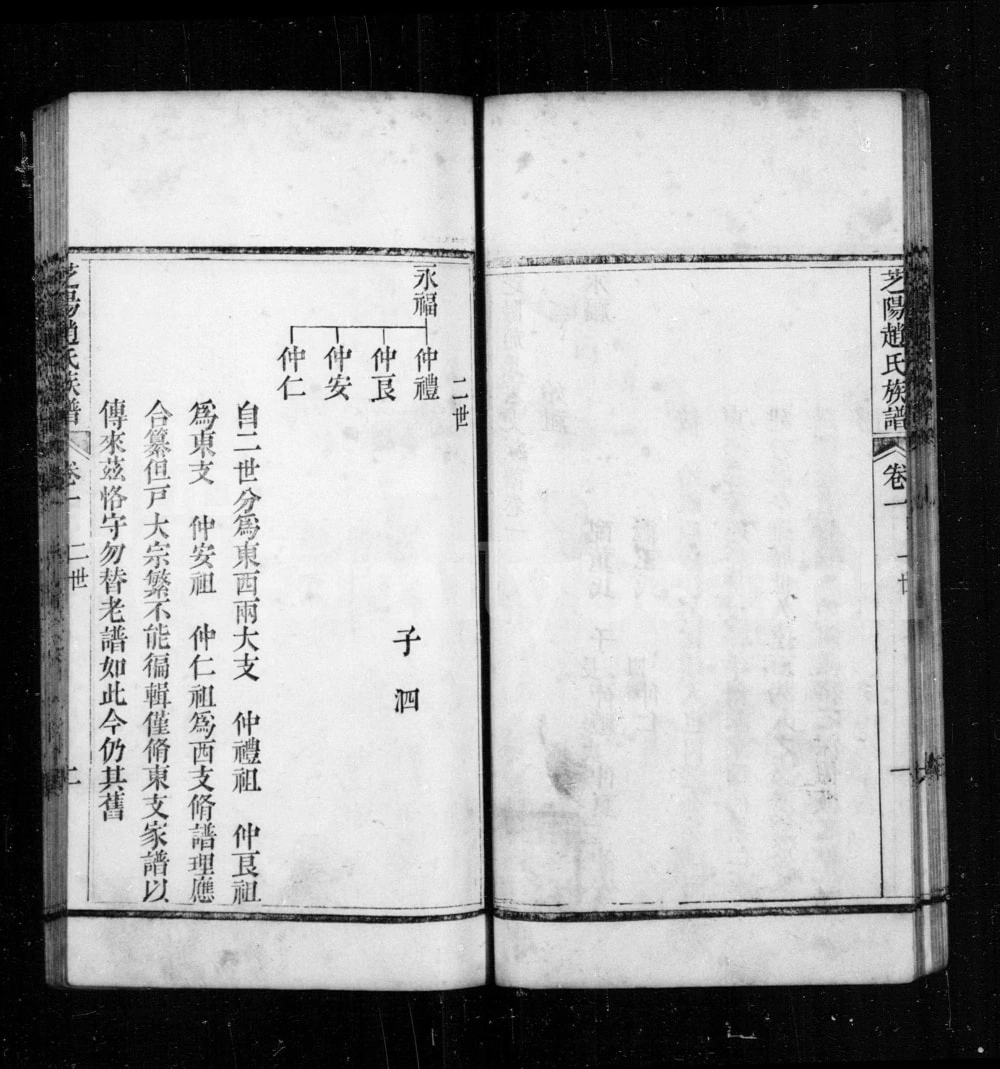 芝陽趙氏族譜 卷一 一世 一
二世
永福
仲禮
仲良
仲安
仲仁
子 泗
自二世分爲東西兩大支 仲禮祖 仲良祖
爲東支 仲安祖 仲仁祖爲西支脩譜理應
合纂但戸大宗繁不能徧輯僅脩東支家譜以
傳來茲恪守勿替老譜如此今仍其舊
芝陽趙氏族譜 卷一 二世 二